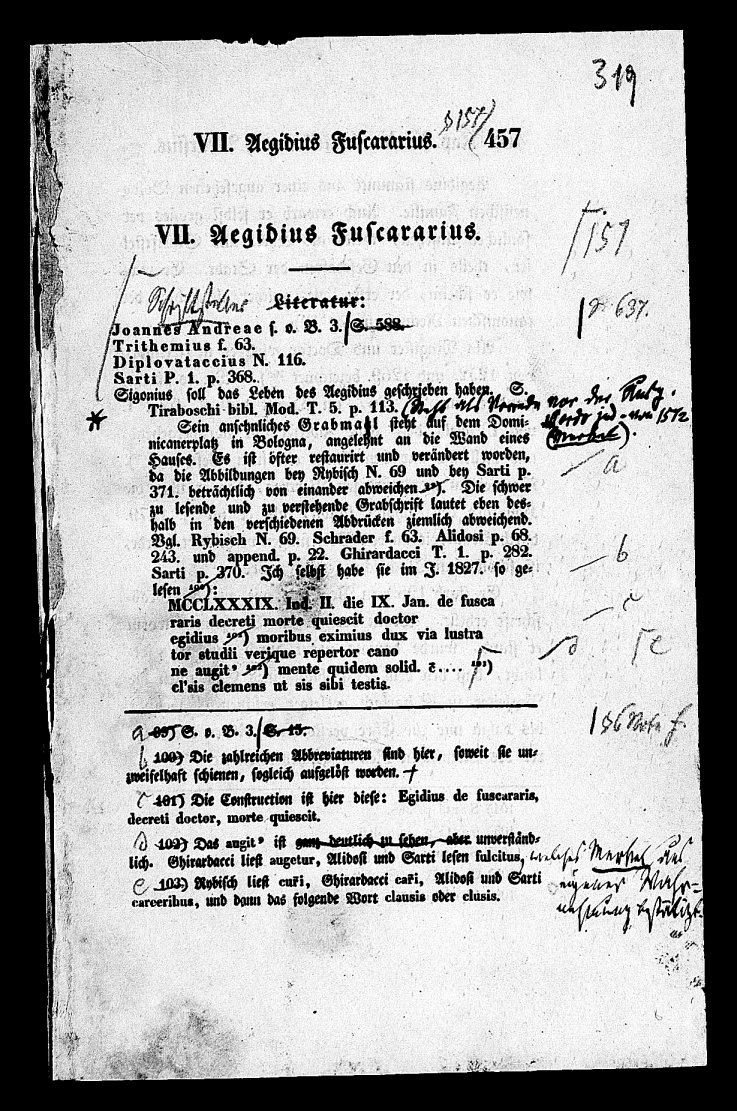 319
§ 157
VII. Aegidius Fuscararius. 457
VII. Aegidius Fuscararius.
157
Schriftsteller Literatur:
Joannes Andreae s. o. B. 3. S. 588.
637.
Trithemius f. 63.
Diplovataccius N. 116.
Sarti P. 1. p. 368.
Sigonius soll das Leben des Aegidius geschrieben haben. S.
* Tiraboschi bibl. Mod. T. 5. p. 113. (Steht als Vorrede vor der
von 1572
(Merkel).
Sein ansehnliches Grabmal steht auf dem Domi-
nicanerplatz in Bologna, angelehnt an die Wand eines
Hauses. Es ist öfter restaurirt und verändert worden,
da die Abbildungen bey Rybisch N. 69 und bey Sarti p.
a
371. beträchtlich von einander abweichen 99). Die schwer
zu lesende und zu verstehende Grabschrift lautet eben des-
halb in den verschiedenen Abdrücken ziemlich abweichend.
Vgl. Rybisch N. 69. Schrader f. 63. Alidosi p. 68.
243. und append. p. 22. Ghirardacci T. 1. p. 282.
b
Sarti p. 370. Ich selbst habe sie im J. 1827. so ge-
lesen 100):
MCCLXXXIX. Ind. II. die IX. Jan. de fusca
c
raris decreti morte quiescit doctor
egidius 101) moribus eximius dux via lustra
tor studii verique repertor cano
d e
ne augit⁹ 102) mente quidem solid. c̄.... 103)
cl'sis clemens ut sis sibi testis.
a 99) S. o. B. 3. S. 15.
§ 6 Note f.
b 100) Die zahlreichen Abbreviaturen sind hier, soweit sie un-
zweifelhaft schienen, sogleich aufgelöst worden. +
c 101) Die Construction ist hier diese: Egidius de fuscararis,
decreti doctor, morte quiescit.
d 102) Das augit⁹ ist ganz deutlich zu sehen, aber unverständ-
lich. Ghirardacci liest augetur, Alidosi und Sarti lesen fulcitus, welches Merkel aus
eigener Wahr-
nehmung bestätigt.
e 103) Rybisch liest cur̄i, Ghirardacci car̄i, Alidosi und Sarti
carceribus, und dann das folgende Wort clausis oder clusis.